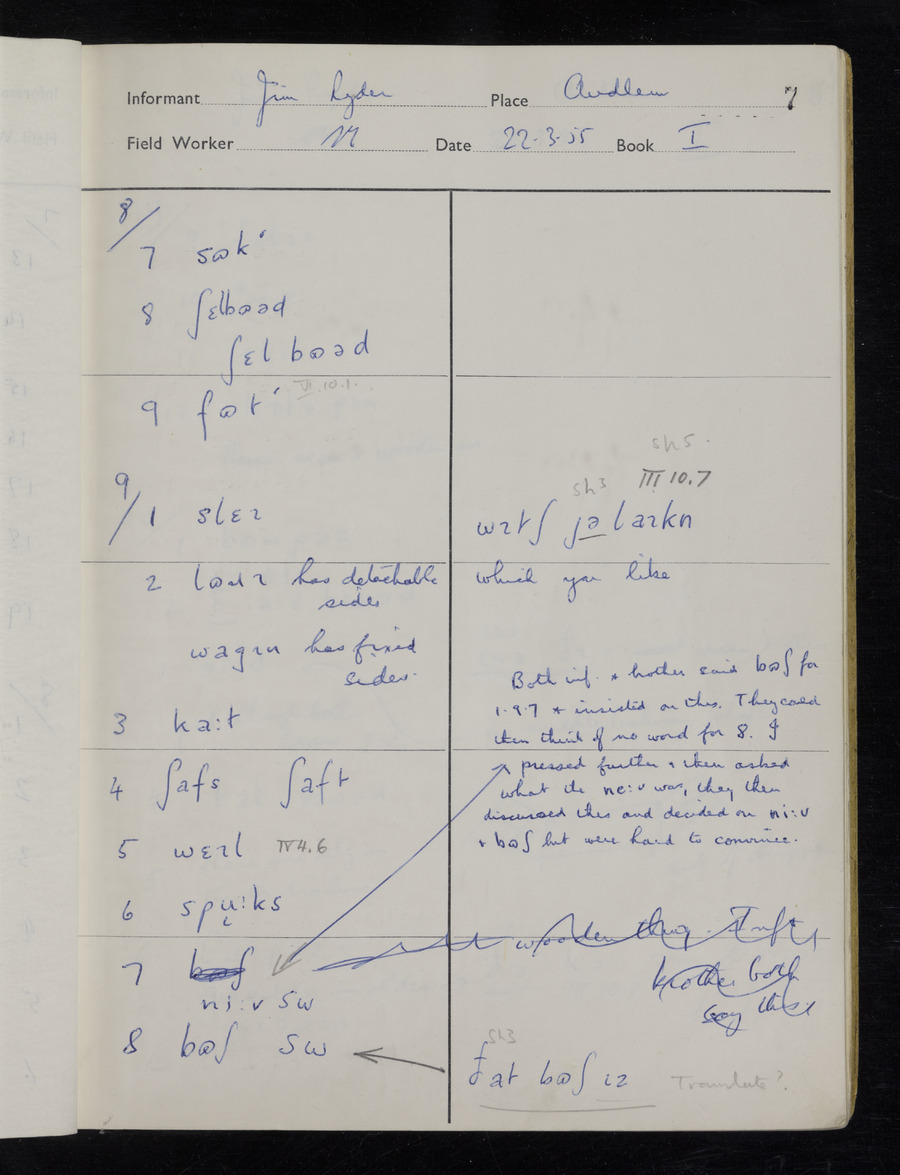 Informant Jim Ryder Place Audlem 7
Field Worker Date 22.3.55 Book I
8/
7 sɷk‘
8 ʃɛlbɷəd
ʃɛl bɷəd
VI.10.1.
9 fɷt‘
sh5.
sh3 III 10.7
9/1 slɛɪ wɪtʃ jə laɪkn
which you like
2 has detachable
sides
wagɪn has fixed
sides.
3 ka:t
4 ʃafs ʃaft
5 wɛɪl IV 4.6
6 spu̜:ks
7 bɷʃ
ni:v SW
8 bɷʃ SW
Both inf. + brother said bɷʃ for
1.9.7 + insisted on this. They could
then think of no word for 8. I
pressed further & then asked
what the ne:v was, they then
discussed this and decided on ni:v
+ bɷʃ but were hard to convince.
wooden thing. Inft
brother both
say this
sh3
ðat bɷʃ ɪz Translate?